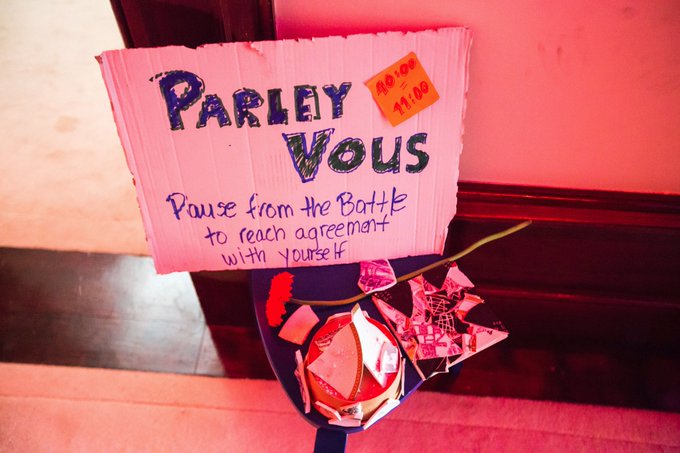 PARLEY
10:00
-
11:00
VOUS
Pause from the Battle
to reach agreement
with yourself